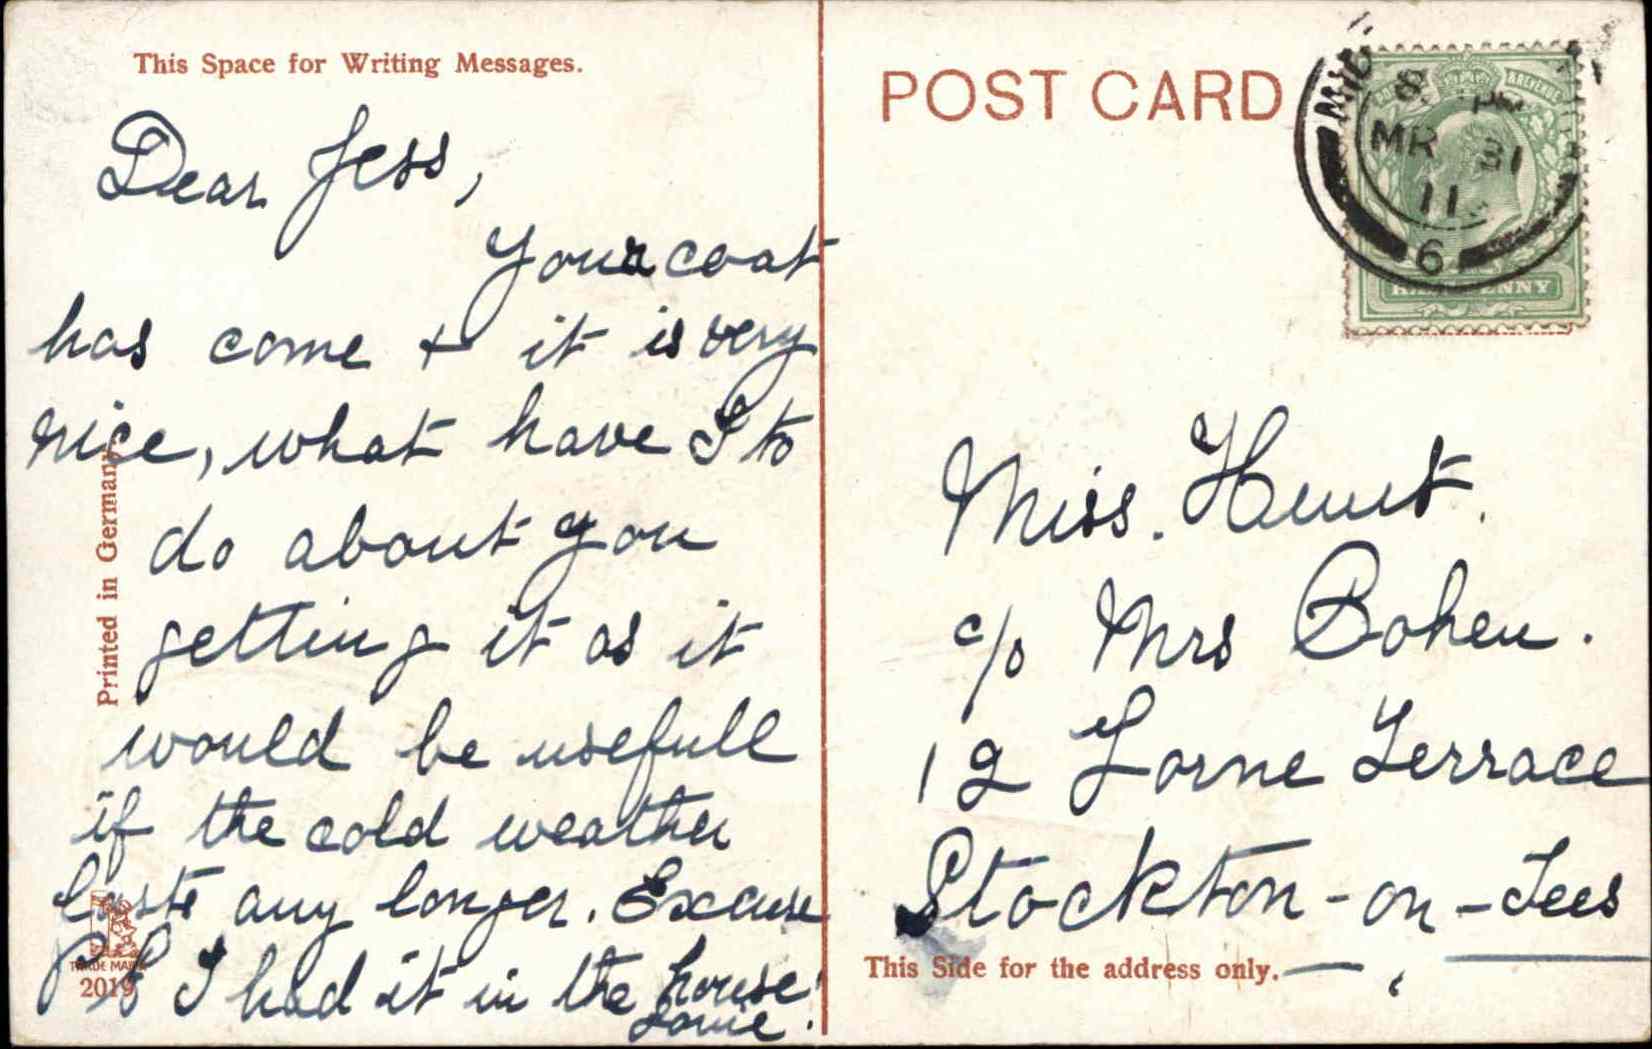 This Space for Writing Messages.
Dear Jess,
Your coat
has come + it is very
nice, what have I to
do about you
getting it as it
would be usefull
if the cold weather
laste any longer. Excuse
P.C. I had it in the house!
Louie.
Printed in Germany
TRADE MARK
2019
POST CARD
8 PM
MR 31
11
6
HALFPENNY
Miss. Hunt.
c/o Mrs Bohen.
12 Lorne Terrace
Stockton-on-Tees
This Side for the address only.